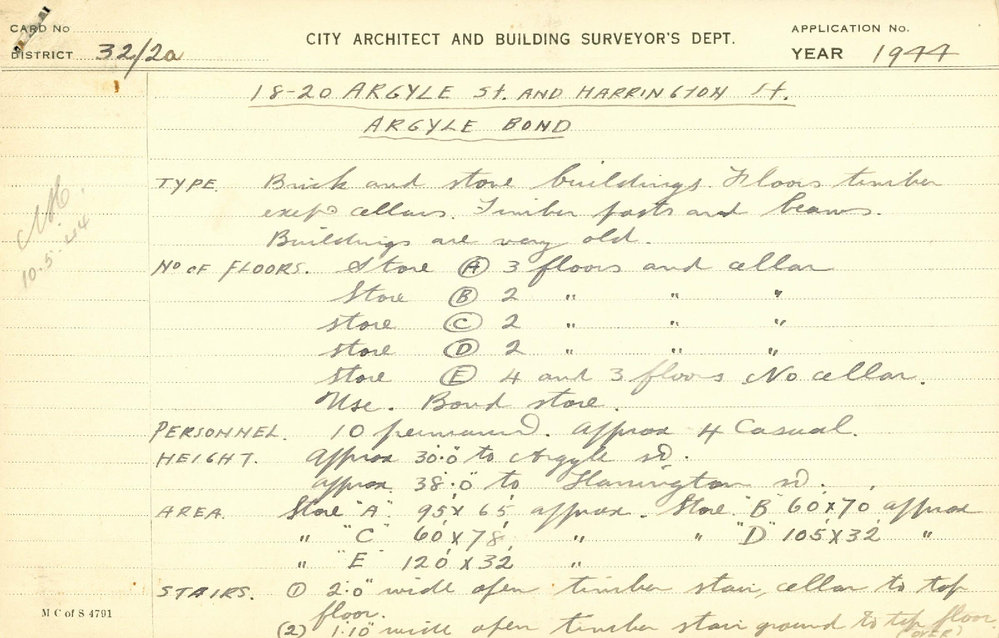 CARD No
CITY ARCHITECT AND BUILDING SURVEYOR'S DEPT.
APPLICATION No.
DISTRICT 32/2a
YEAR 1944
18-20 ARGYLE St. AND HARRINGTON St.
ARGYLE BOND
TYPE. Brick and stone buildings. Floors timber
exep? cellars. Timber posts and beams.
Buildings are very old.
10.5.44
No OF FLOORS. Store (A) 3 floors and cellar
Store (B) 2 " " "
store (C) 2 " " "
store (D) 2 " " "
store (E) 4 and 3 floors No cellar.
Use. Bond store.
PERSONNEL. 10 permanent. Approx 4 Casual.
HEIGHT. Approx 30'.0" to Argyle st.
approx 38'.0" to Harrington st.
AREA. Store "A" 95' x 65' approx. Store "B" 60' x 70' approx
" "C" 60' x 78' " " "D" 105' x 32' "
"E" 120' x 32' "
STAIRS. (1) 2'.0" wide open timber stair, cellar to top
floor.
(2) 1'.10" wide open timber stair ground to top floor
(OVER)
M C of S 4791